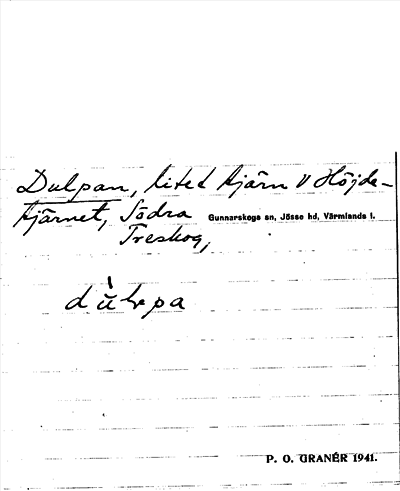 Dulpan, litet tjärn V Höjde-
tjärnet, Södra Gunnarskogs sn, Jösse hd, Värmlands l.
Treskog,
dŭ̀lpa
P. O. GRANÉR 1941.